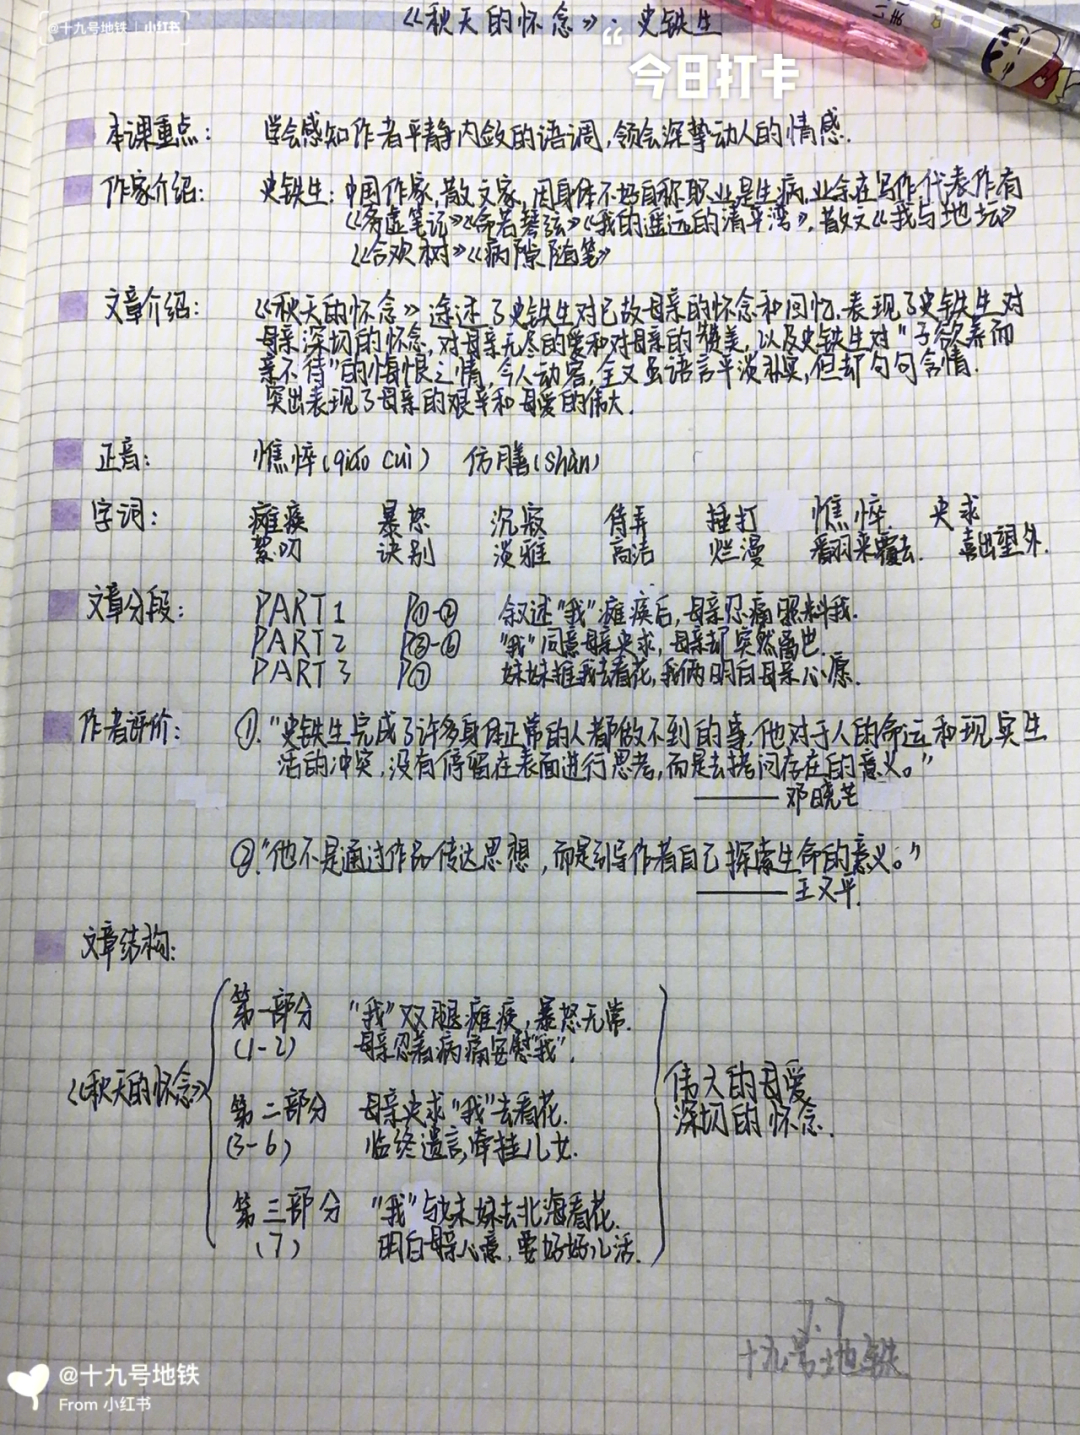 @十九号地铁 | 小红书
《秋天的怀念》: 史铁生
“今日打卡
本课重点: 学会感知作者平静内敛的语调,领会深挚动人的情感.
作家介绍: 史铁生: 中国作家,散文家,因身体不好自称职业是生病,业余在写作代表作有
《务虚笔记》《命若琴弦》《我的遥远的清平湾》.散文《我与地坛》
《合欢树》《病隙随笔》
文章介绍: 《秋天的怀念》 述了史铁生对已故母亲的怀念和回忆.表现了史铁生对
母亲深切的怀念,对母亲无尽的爱和对母亲的赞美,以及史铁生对“子欲养而
亲不待”的悔恨之情,令人动容,全文虽语言平淡朴实,但却句句含情.
突出表现了母亲的艰辛和母爱的伟大.
正音: 憔悴(qiáo cuì) 仿膳(shàn)
字词: 瘫痪 暴怒 沉寂 侍弄 捶打 憔悴. 央求
絮叨 诀别 淡雅 高洁 烂漫 翻来覆去. 喜出望外.
文章分段: PART1 P①-② 叙述“我”瘫痪后,母亲忍痛照料我.
PART2 P③-⑥ “我”同意母亲央求,母亲却突然离世.
PART3 P⑦ 妹妹推我去看花,我俩明白母亲心愿.
作者评价: ①.“史铁生完成了许多身体正常的人都做不到的事,他对于人的命运和现实生
活的冲突,没有停留在表面进行思考,而是去拷问存在的意义。”
——邓晓芒
②.“他不是通过作品传达思想,而是引导作者自己探索生命的意义。”
——王又平.
文章结构:
《秋天的怀念》
第一部分 “我”双腿瘫痪,暴怒无常.
(1-2) 母亲忍着病痛安慰“我”.
第二部分 母亲央求“我”去看花.
(3-6) 临终遗言,牵挂儿女.
第三部分 “我”与妹妹去北海看花.
(7) 明白母亲心意,要好好儿活.
伟大的母爱
深切的怀念.
7.7
十九号地铁
@十九号地铁
From 小红书